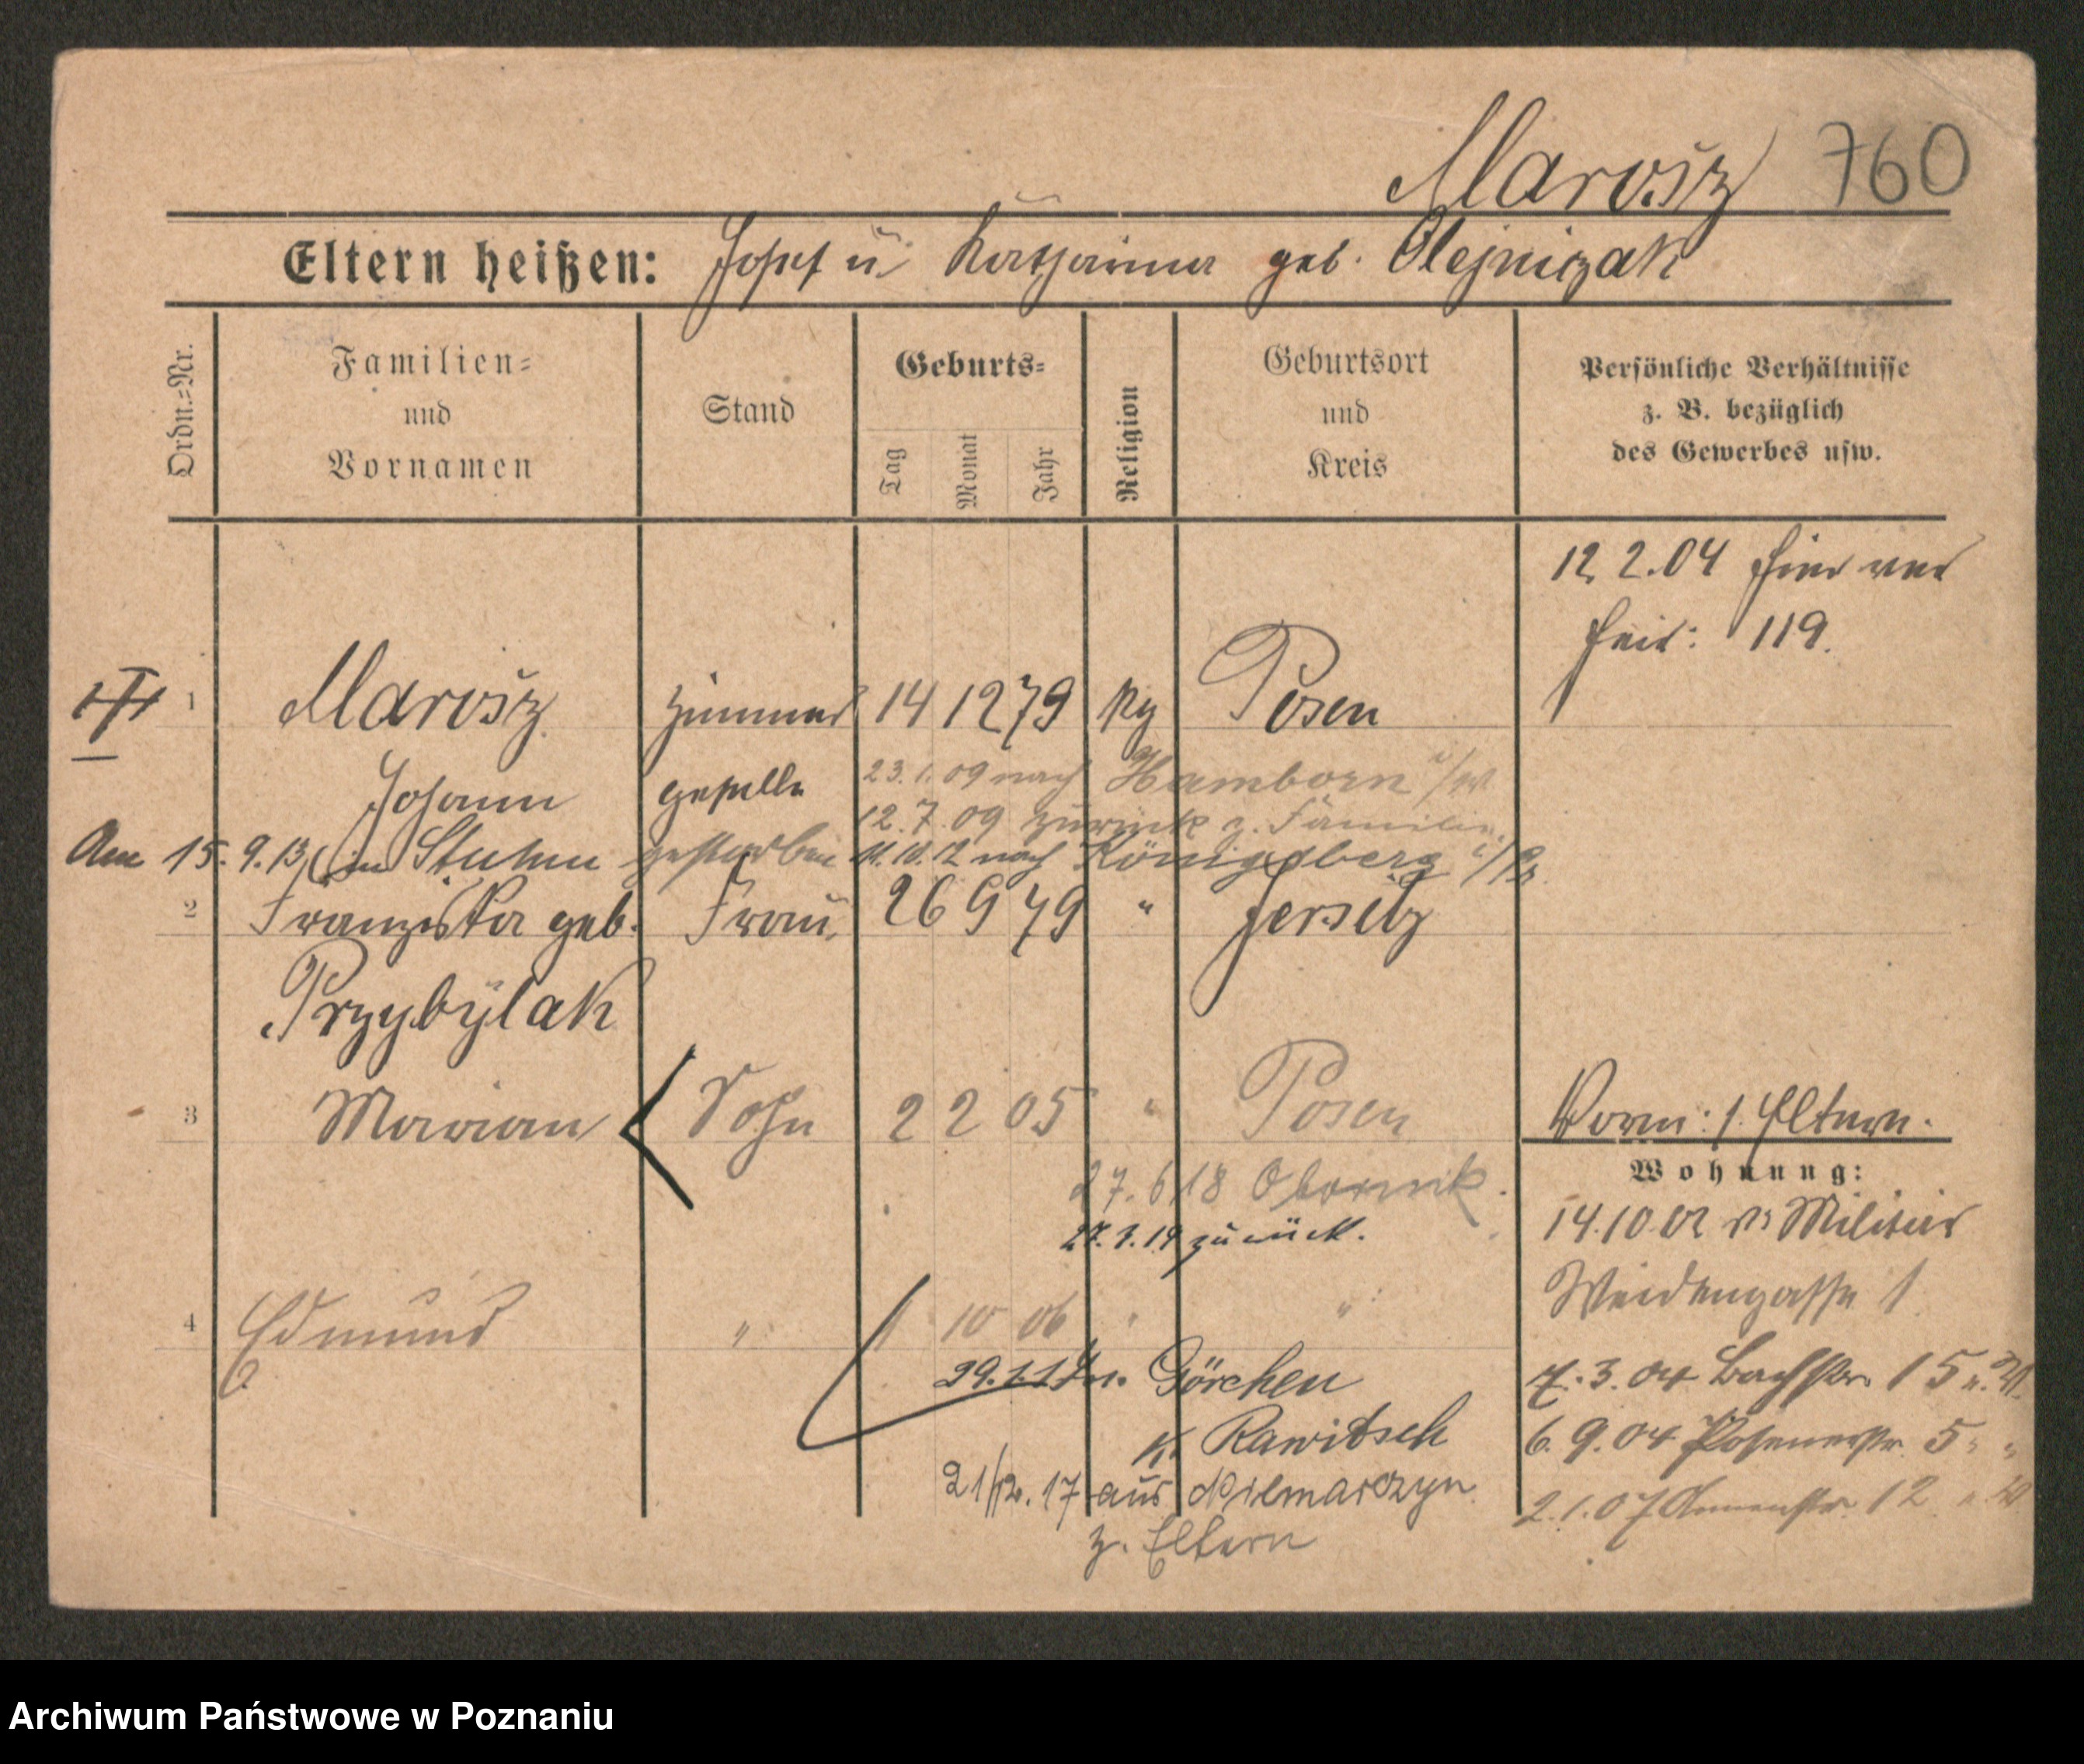 Marosz 760
Eltern heißen: Josef u. Katharina geb. Olejniczak
Ordn.=Nr.
Familien=
und
Vornamen
Stand
Geburts=
Tag
Monat
Jahr
Religion
Geburtsort
und
Kreis
Persönliche Verhältnisse
z. B. bezüglich
des Gewerbes usw.
12 2.04 hier ver
heir: 119.
1 Marosz Zimmer 14 12 79 Posen
Johann geselle 23.1.09 nach Hamborn
12.7.09 zurück z. Familie.
Am 15.9.13 in Stuhm gestorben 11.10.12 nach Königsberg i/Pr.
2 Franziska geb. Frau 26 9 79 " Jersitz
Przybylak
3 Marian Sohn 2 2 05 " Posen Vorm: 1. Eltern.
Wohnung:
27.6 18 Obornik. 14.10.02 v. Militär
zurück. Weidengasse 1
4 Edmund " 10 06 " "
Görchen 7.3.04 Bachstr. 15
K. Rawitsch 6.9.04 Posenerstr. 5
21/12.17 aus 2.1.07 Annenstr. 12
z. Eltern
Archiwum Państwowe w Poznaniu